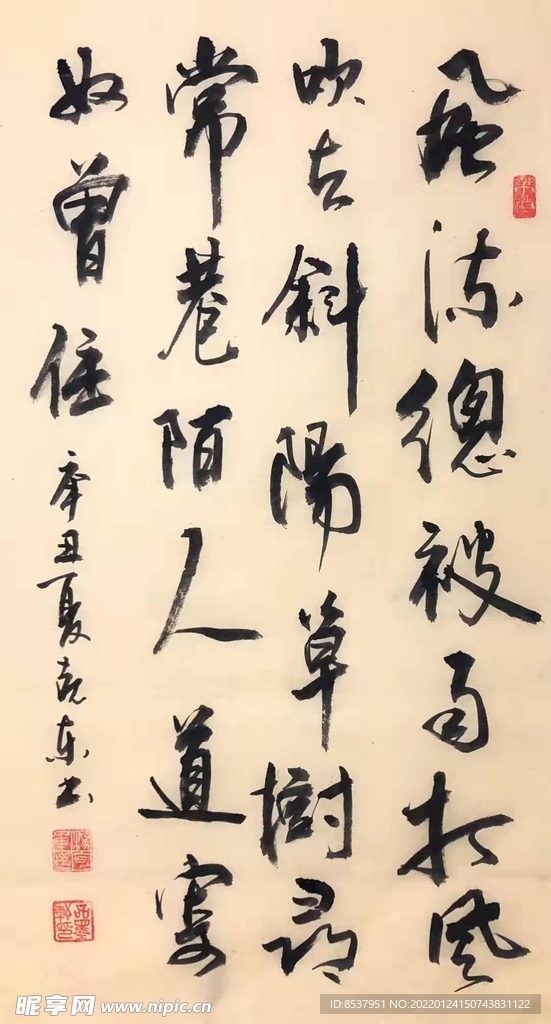 風流總被雨打風
吹去斜陽草樹尋
常巷陌人道寄
奴曾住
辛丑夏東书
昵享网 www.nipic.cn
ID:8537951 NO:20220124150743831122